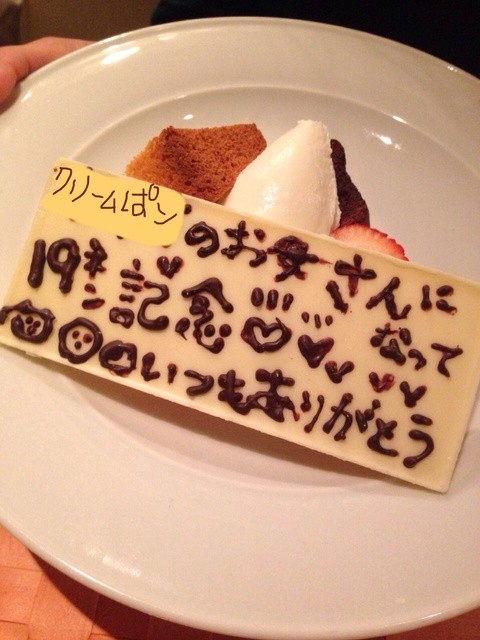 クリームぱン
のお母さんに
なって
19ネン♥記念!!!♡!!!♥♥♥♥
いつもありがとう